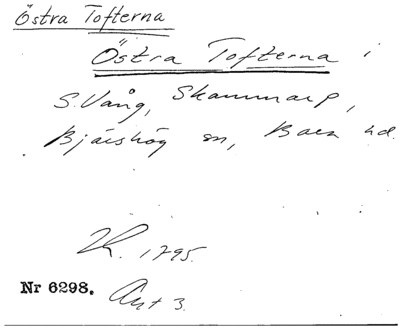 Östra Tofterna
Östra Tofterna i
S. Vång, Skammarp,
Bjäishög sn, Bara hd.
R. 1795.
Nr 6298. Akt 3.